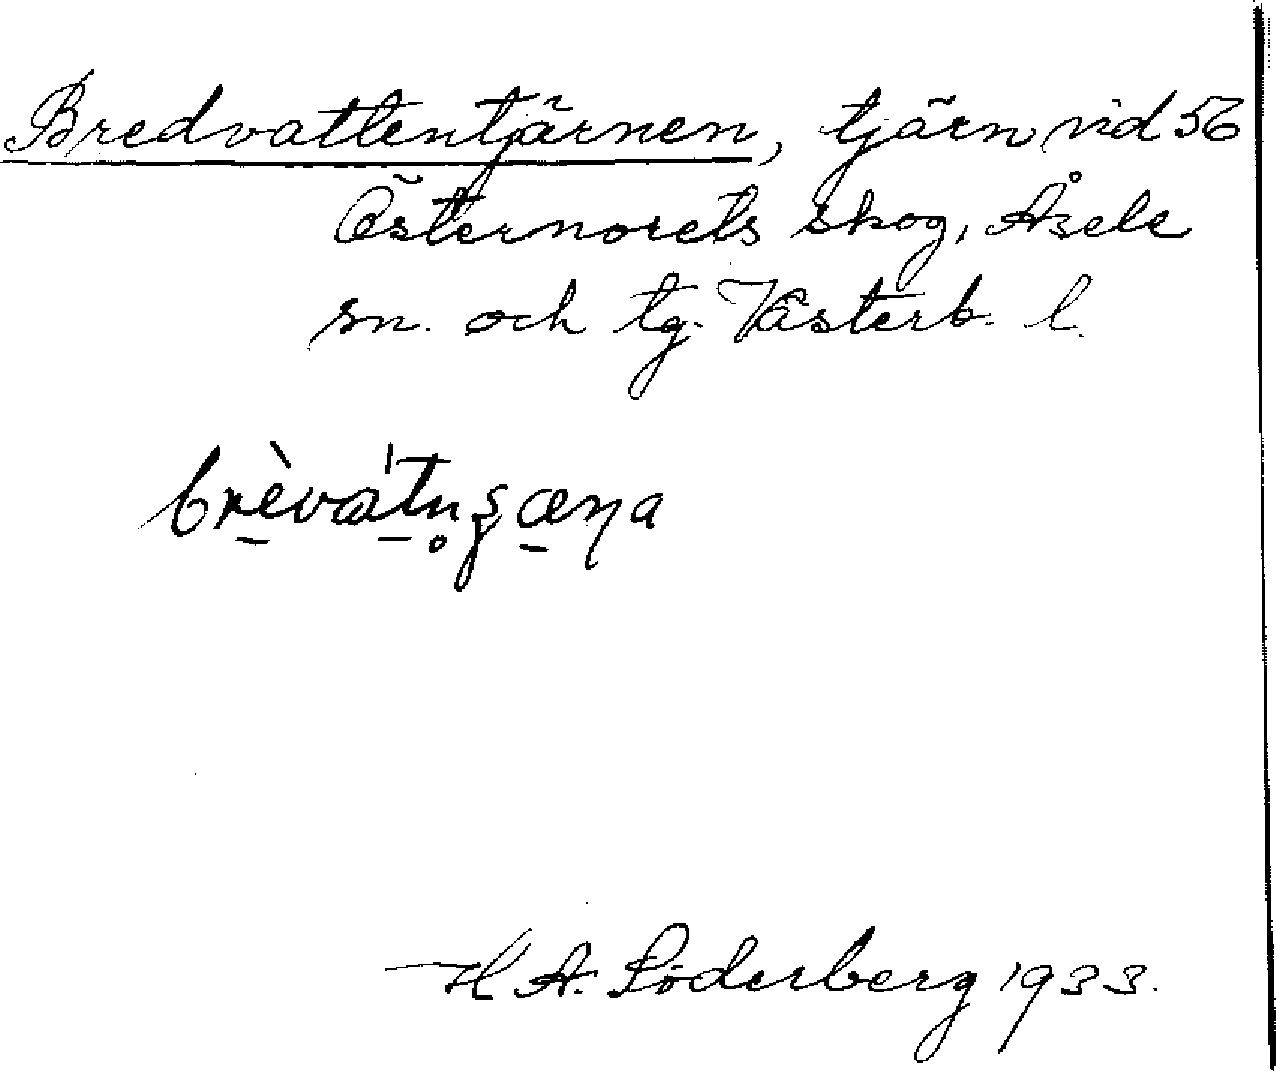 Bredvattentjärnen, tjärn vid 56
Östernorets skog, Åsele
sn. och tg. Västerb. l.
H A. Söderberg 1933.